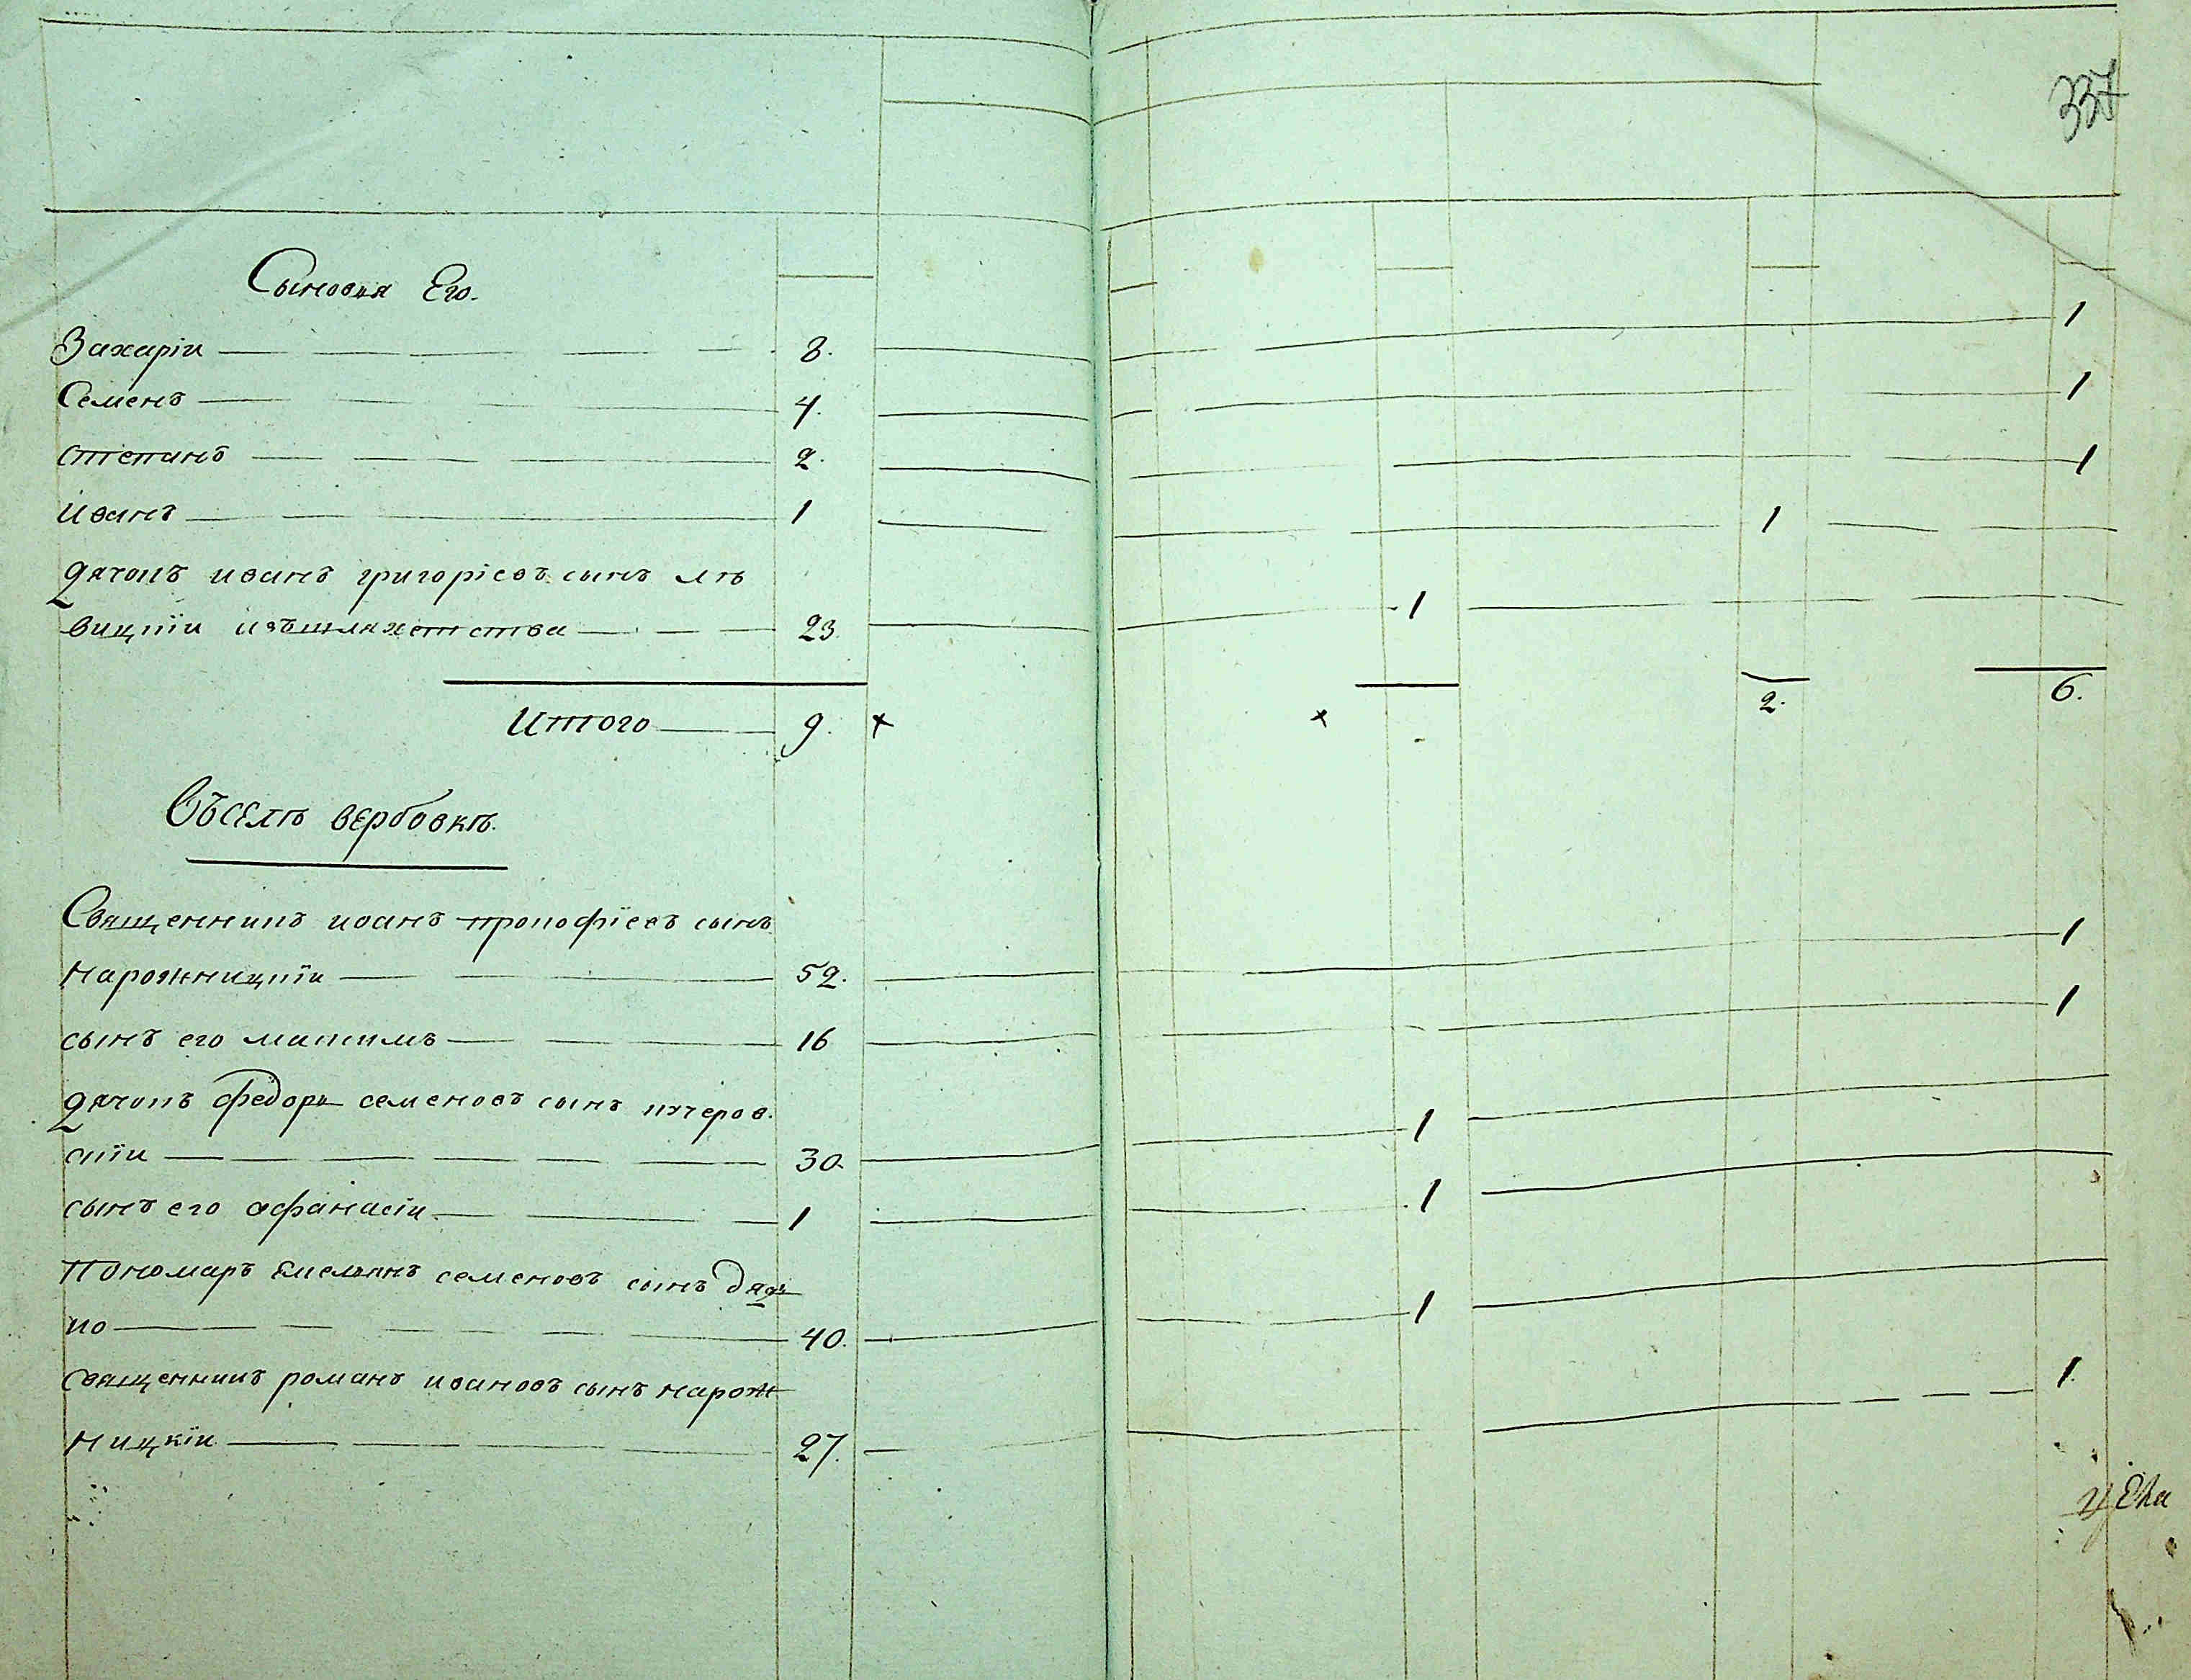 337
Сыновья Его.
Захаріи 8. 1
Семенъ 4. 1
степанъ 2. 1
иванъ 1 1
дячокъ иванъ григоріевъ сынъ лѣ
вицкїи изъшляхетства 23. 1
Итого 9. + × 2. 6.
Въселѣ вербовкѣ.
Священникъ иоанъ прокофїевъ сынъ
нарожницкїи 52. 1
сынъ его максимъ 16 1
дячокъ федоръ семеновъ сынъ
скїи 30. 1
сынъ его афанасіи 1 1
Пономаръ Емельянъ семеновъ сынъ
ко 40. 1
священникъ романъ ивановъ сынъ нарож
ницкїи 27. 1.